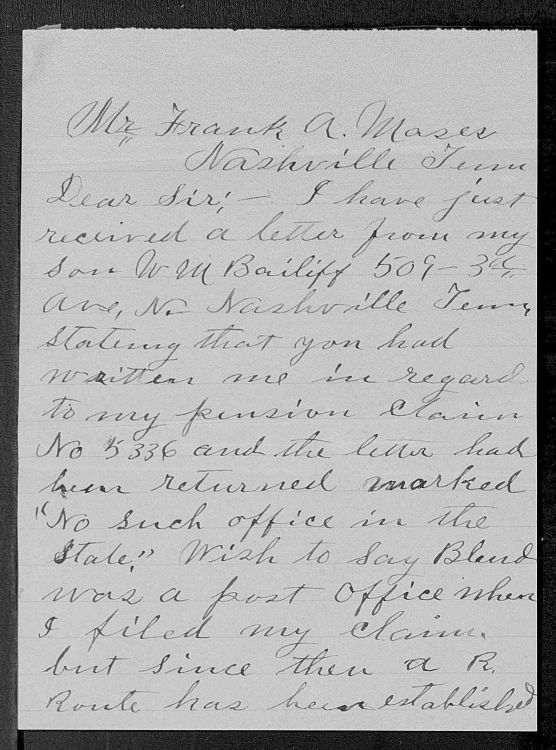 Mr Frank A. Moses
Nashville Tenn
Dear Sir;- I have just
received a letter from my
son W M Bailiff 509-3rd
Ave, N- Nashville Tenn,
stateing that you had
written me in regard
to my pension claim
No 5336 and the letter had
been returned marked
"No such office in the
State." Wish to say Blend
was a post Office when
I filed my claim.
but since then a R.
Route has been established